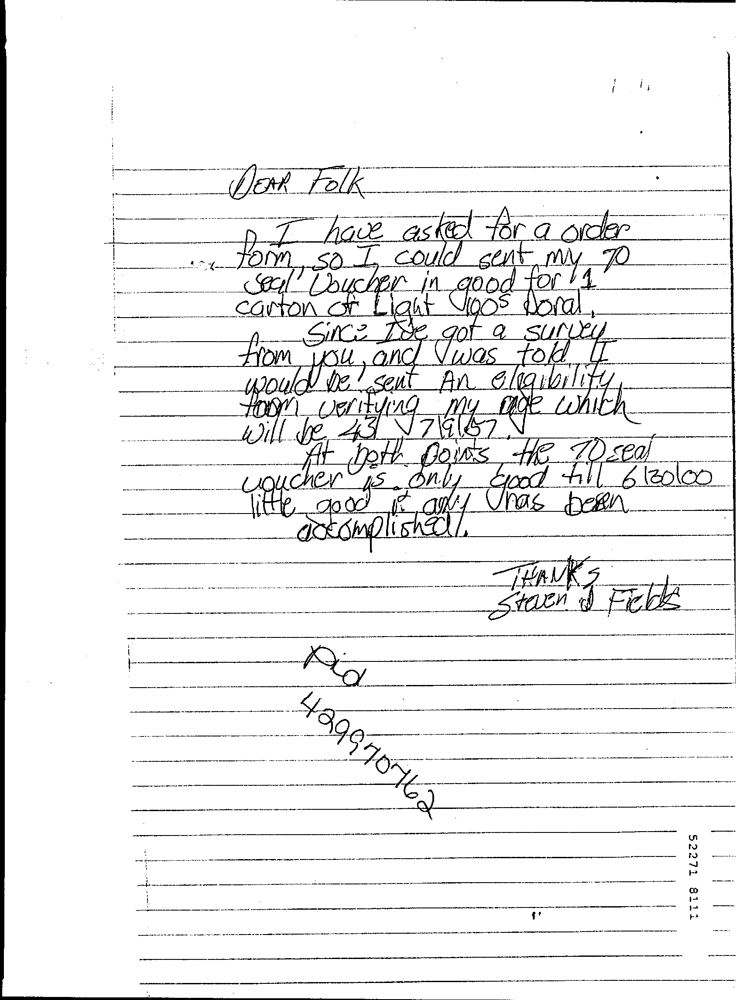 DEAR Folk
I have asked for a order
form, so I could sent my 70
seal Voucher in good for 1
carton of Light 100s Doral.
Since I've got a survey
from you, and was told I
would be sent An eligibility
form verifying my age which
will be 43 7/9/57.
At both points the 70 seal
voucher is only good till 6/30/00
little good if any has been
accomplished.
THANKS
Steven J Fields
Pid
429970762
52271 8111